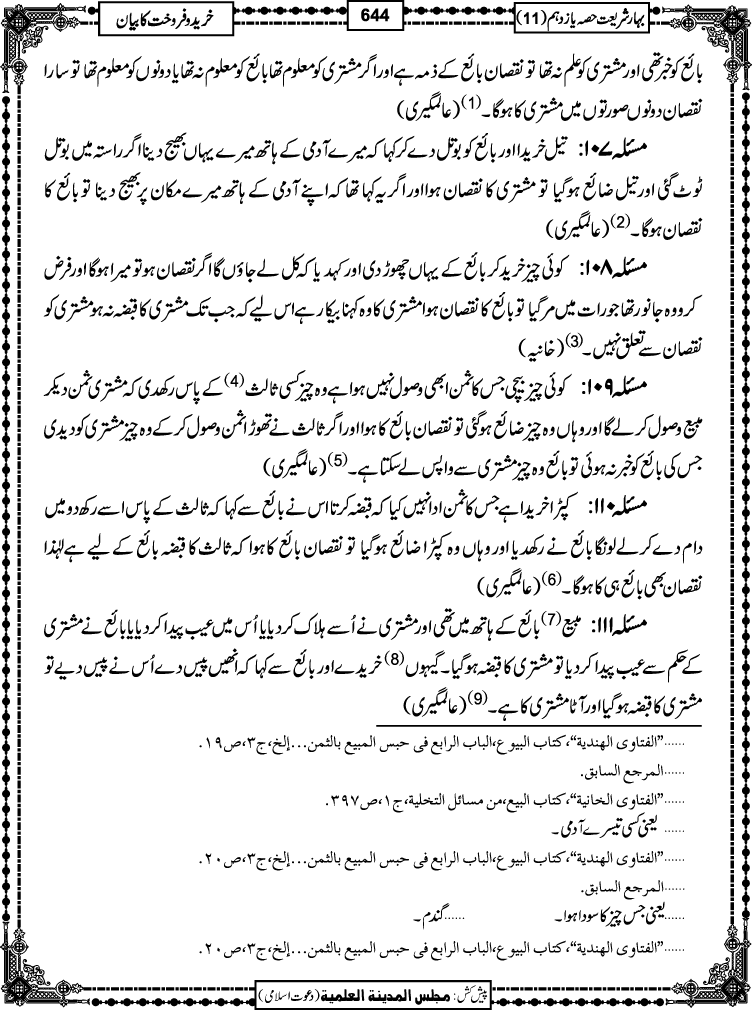 بہار شریعت حصہ یازدہم (11)
644
خرید و فروخت کا بیان
بائع کو خبر تھی اور مشتری کو علم نہ تھا تو نقصان بائع کے ذمہ ہے اور اگر مشتری کو معلوم تھا بائع کو معلوم نہ تھا یا دونوں کو معلوم تھا تو سارا
نقصان دونوں صورتوں میں مشتری کا ہوگا۔(1) (عالمگیری)
مسئلہ ۱۰۷: تیل خریدا اور بائع کو بوتل دے کر کہا کہ میرے آدمی کے ہاتھ میرے یہاں بھیج دینا اگر راستہ میں بوتل
ٹوٹ گئی اور تیل ضائع ہوگیا تو مشتری کا نقصان ہوا اور اگر یہ کہا تھا کہ اپنے آدمی کے ہاتھ میرے مکان پر بھیج دینا تو بائع کا
نقصان ہوگا۔(2) (عالمگیری)
مسئلہ ۱۰۸: کوئی چیز خرید کر بائع کے یہاں چھوڑ دی اور کہدیا کہ کل لے جاؤں گا اگر نقصان ہو تو میرا ہوگا اور فرض
کرو وہ جانور تھا جو رات میں مر گیا تو بائع کا نقصان ہوا مشتری کا وہ کہنا بیکار ہے اس لیے کہ جب تک مشتری کا قبضہ نہ ہو مشتری کو
نقصان سے تعلق نہیں۔(3) (خانیہ)
مسئلہ ۱۰۹: کوئی چیز بیچی جس کا ثمن ابھی وصول نہیں ہوا ہے وہ چیز کسی ثالث(4) کے پاس رکھدی کہ مشتری ثمن دیکر
مبیع وصول کرلے گا اور وہاں وہ چیز ضائع ہوگئی تو نقصان بائع کا ہوا اور اگر ثالث نے تھوڑا ثمن وصول کرکے وہ چیز مشتری کو دیدی
جس کی بائع کو خبر نہ ہوئی تو بائع وہ چیز مشتری سے واپس لے سکتا ہے۔(5) (عالمگیری)
مسئلہ ۱۱۰: کپڑا خریدا ہے جس کا ثمن ادا نہیں کیا کہ قبضہ کرتا اس نے بائع سے کہا کہ ثالث کے پاس اسے رکھ دو میں
دام دے کر لے لونگا بائع نے رکھدیا اور وہاں وہ کپڑا ضائع ہوگیا تو نقصان بائع کا ہوا کہ ثالث کا قبضہ بائع کے لیے ہے لہٰذا
نقصان بھی بائع ہی کا ہوگا۔(6) (عالمگیری)
مسئلہ ۱۱۱: مبیع(7) بائع کے ہاتھ میں تھی اور مشتری نے اُسے ہلاک کر دیا یا اُس میں عیب پیدا کر دیا یا بائع نے مشتری
کے حکم سے عیب پیدا کر دیا تو مشتری کا قبضہ ہوگیا۔ گیہوں(8) خریدے اور بائع سے کہا کہ انھیں پیس دے اُس نے پیس دیے تو
مشتری کا قبضہ ہوگیا اور آٹا مشتری کا ہے۔(9) (عالمگیری)
......"الفتاوی الهندية"، کتاب البيوع، الباب الرابع فی حبس المبیع بالثمن...إلخ، ج٣، ص١٩.
......المرجع السابق.
......"الفتاوی الخانية"، کتاب البیع، من مسائل التخلية، ج١، ص٣٩٧.
...... یعنی کسی تیسرے آدمی۔
......"الفتاوی الهندية"، کتاب البيوع، الباب الرابع فی حبس المبیع بالثمن...إلخ، ج٣، ص٢٠.
......المرجع السابق.
......یعنی جس چیز کا سودا ہوا۔ ......گندم۔
......"الفتاوی الهندية"، کتاب البيوع، الباب الرابع فی حبس المبیع بالثمن...إلخ، ج٣، ص٢٠.
پیش کش: مجلس المدینة العلمیة (دعوت اسلامی)